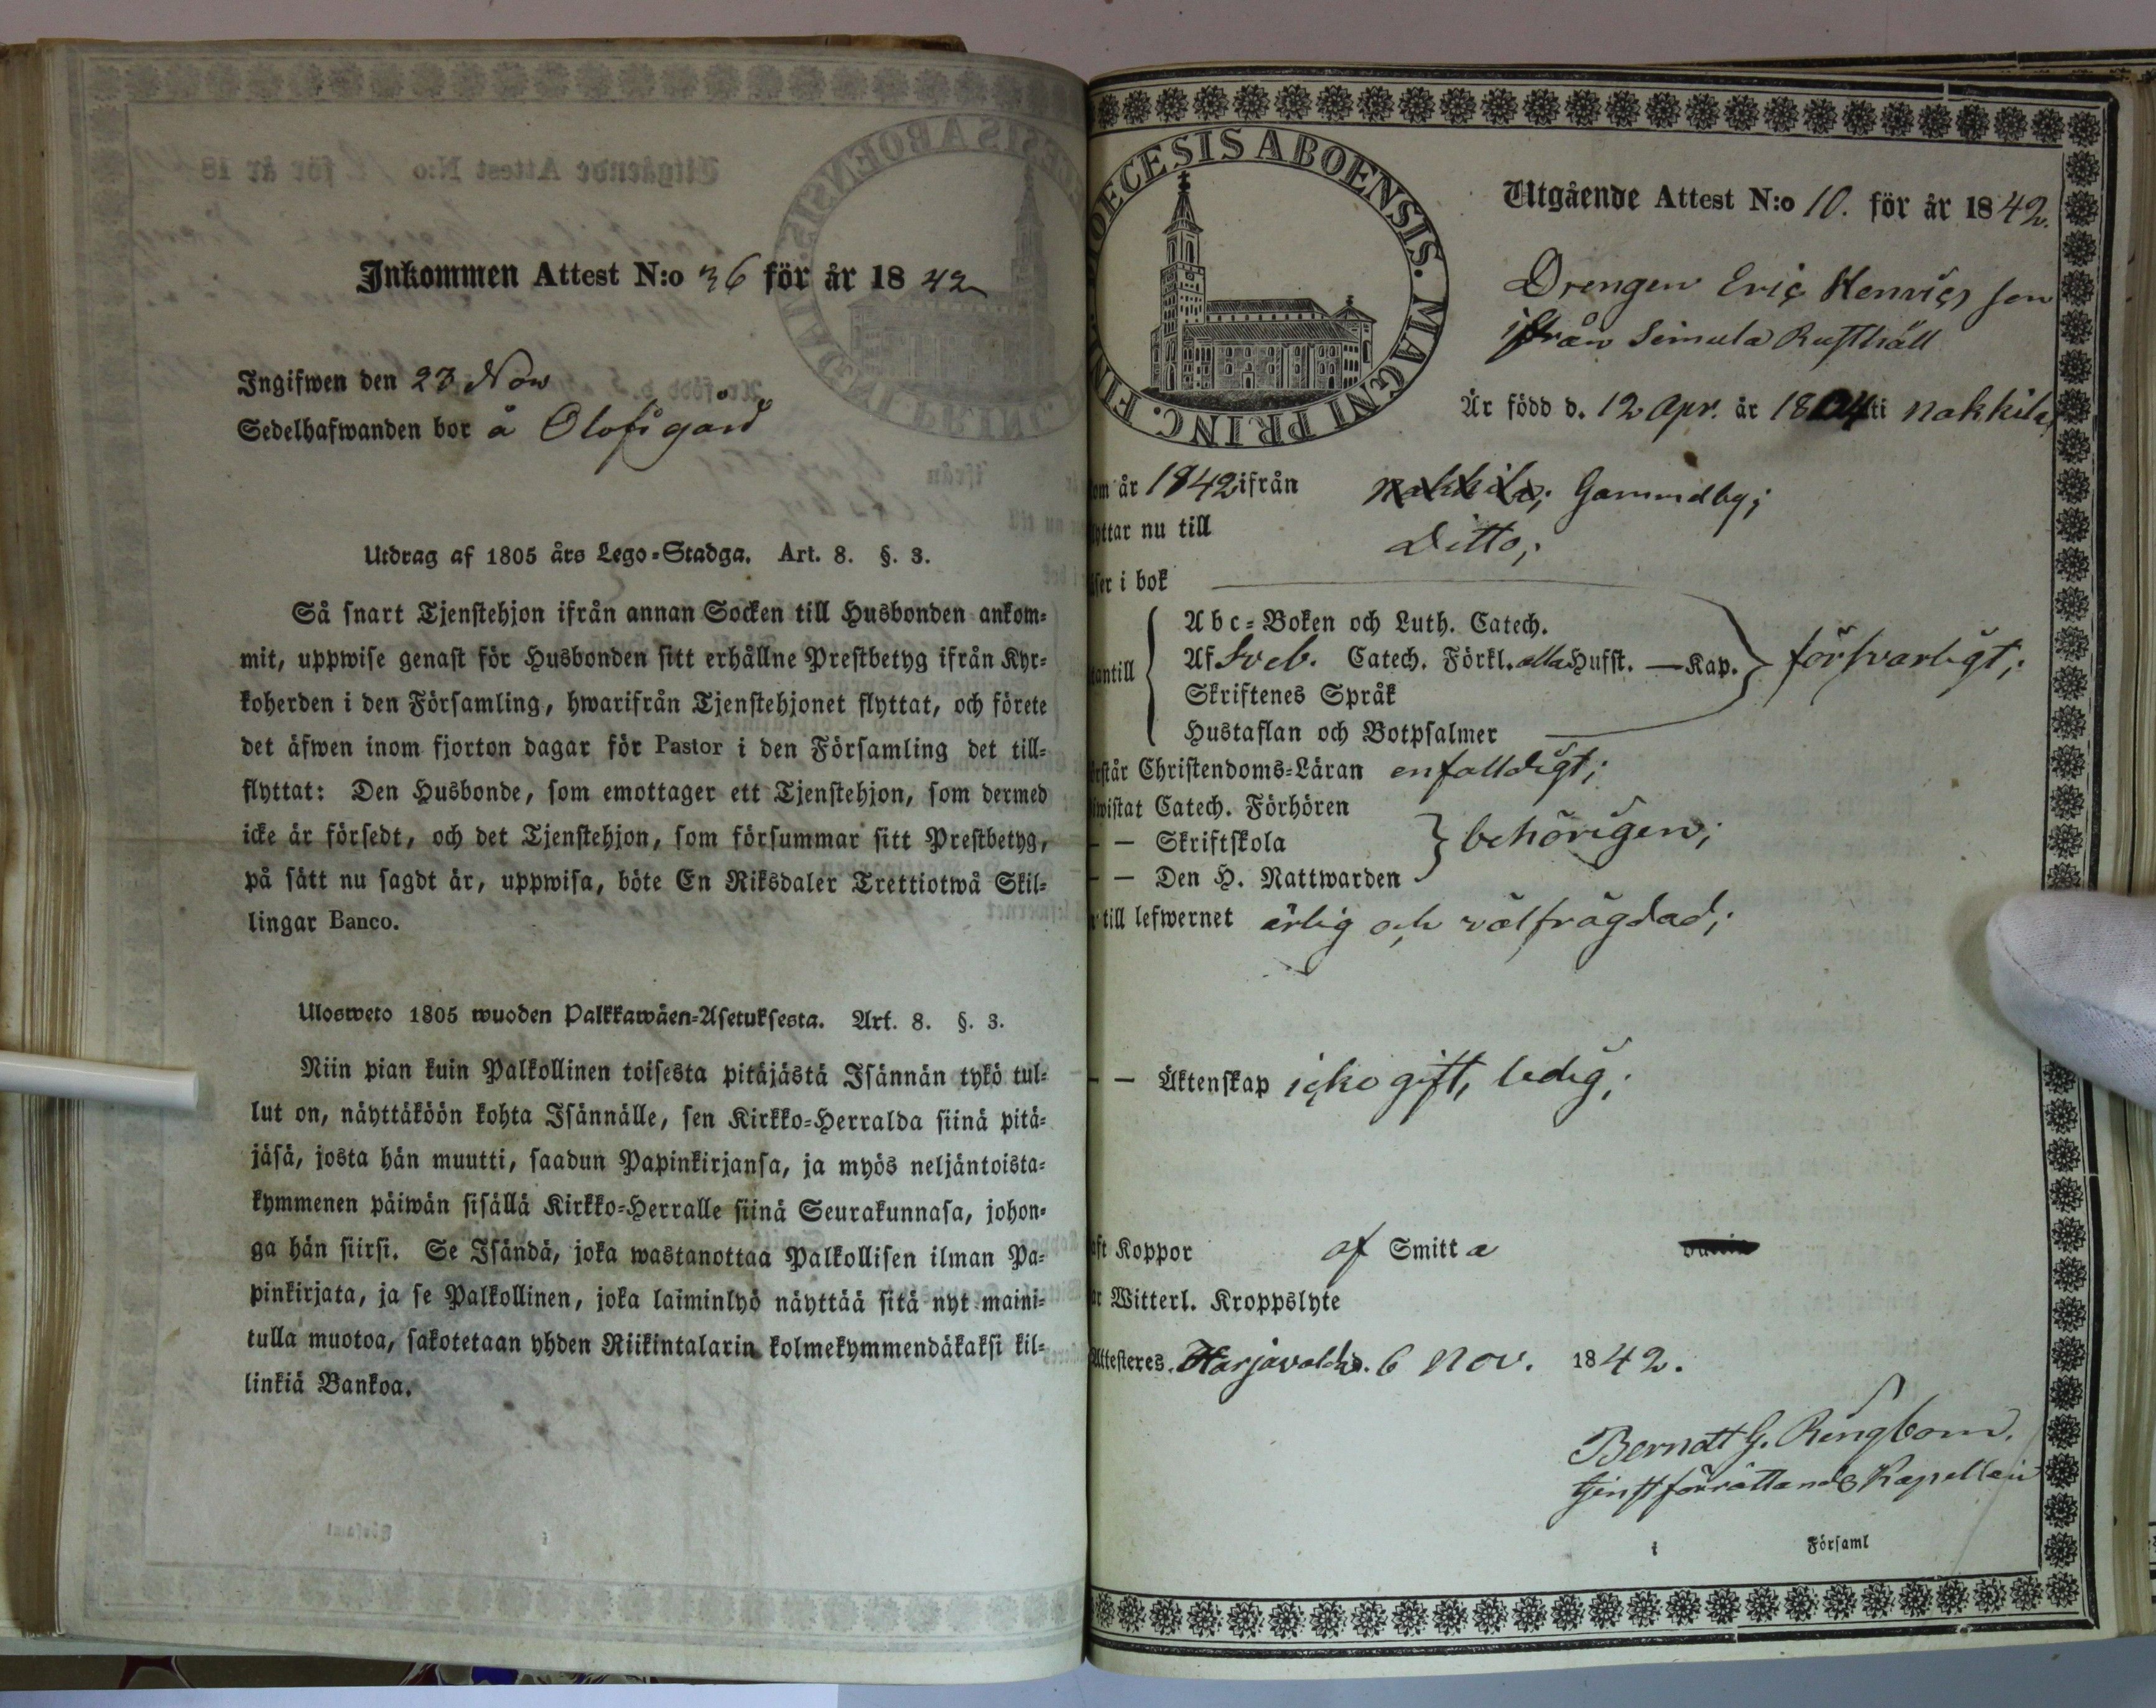 Inkommen Attest N:o 36 för år 1842
Ingifwen den 23 Nov
Sedelhafwanden bor å Olofsgård
Utdrag af 1805 års Lego-Stadga. Art. 8. §. 3.
Så snart Tjenstehjon ifrån annan Socken till Husbonden ankom-
mit, uppwise genast för Husbonden sitt erhållne Prestbetyg ifrån Kyr-
koherden i den Församling, hwarifrån Tjenstehjonet flyttat, och förete
det äfwen inom fjorton dagar för Pastor i den Församling det till-
flyttat: Den Husbonde, som emottager ett Tjenstehjon, som dermed
icke är försedt, och det Tjenstehjon, som försummar sitt Prestbetyg,
på sätt nu sagdt är, uppwisa, böte En Riksdaler Trettiotwå Skil-
lingar Banco.
Ulosweto 1805 wuoden Palkkawäen-Asetuksesta. Art. 8. §. 3.
Niin pian kuin Palkollinen toisesta pitäjästä Isännän tykö tul-
lut on, näyttäköön kohta Isännälle, sen Kirkko-Herralda siinä pitä-
jäsä, josta hän muutti, saadun Papinkirjansa, ja myös neljäntoista-
kymmenen päiwän sisällä Kirkko-Herralle siinä Seurakunnasa, johon-
ga hän siirsi. Se Isändä, joka wastanottaa Palkollisen ilman Pa-
pinkirjata, ja se Palkollinen, joka laiminlyö näyttää sitä nyt maini-
tulla muotoa, sakotetaan yhden Riikintalarin kolmekymmendäkaksi kil-
linkiä Bankoa.
DIOECESIS ABOENSIS. MAGNI PRINC. FINL.
Utgående Attest N:o 10. för år 1842.
Drengen Eric Henrics son
ifrån Simula Rusthåll
Är född d. 12 Apr. år 1804 i Nakkila,
om år 1842 ifrån Nakkila; Gammelby;
yttar nu till Ditto;
äser i bok
Abc-Boken och Luth. Catech.
antill Af Sveb. Catech. Förkl. alla Hufst. — Kap. försvarligt;
Skriftenes Språk
Hustaflan och Botpsalmer
rstår Christendoms-Läran enfalldigt;
iwistat Catech. Förhören
— — Skriftskola behörigen;
— — Den H. Nattwarden
till lefwernet ärlig och välfrägdad;
— — Äktenskap icke gift, ledig;
aft Koppor af Smitta
ar Witterl. Kroppslyte
Attesteres. Harjavalda d. 6 Nov. 1842.
Berndt G. Ringbom.
tjenstförrättande Kapellan
i Församl